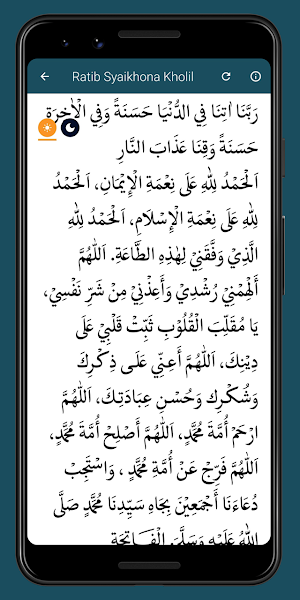 Ratib Syaikhona Kholil
رَبَّنَا اٰتِنَا فِي الدُّنْيَا حَسَنَةً وَفِي الْاٰخِرَةِ
حَسَنَةً وَقِنَا عَذَابَ النَّارِ
اَلْحَمْدُ لِلّٰهِ عَلَى نِعْمَةِ الْإِيْمَانِ، اَلْحَمْدُ
لِلّٰهِ عَلَى نِعْمَةِ الْإِسْلَامِ، اَلْحَمْدُ لِلّٰهِ
الَّذِيْ وَفَّقَنِيْ لِهٰذِهِ الطَّاعَةِ. اَللّٰهُمَّ
أَلْهِمْنِيْ رُشْدِيْ وَأَعِذْنِيْ مِنْ شَرِّ نَفْسِيْ،
يَا مُقَلِّبَ الْقُلُوْبِ ثَبِّتْ قَلْبِيْ عَلَى
دِيْنِكَ، اَللّٰهُمَّ أَعِنِّي عَلَى ذِكْرِكَ
وَشُكْرِكِ وَحُسْنِ عِبَادَتِكَ، اَللّٰهُمَّ
ارْحَمْ أُمَّةَ مُحَمَّدٍ، اَللّٰهُمَّ أَصْلِحْ أُمَّةَ مُحَمَّدٍ،
اَللّٰهُمَّ فَرِّجْ عَنْ أُمَّةِ مُحَمَّدٍ ، وَاسْتَجِبْ
دُعَاءَنَا أَجْمَعِيْنَ بِجَاهِ سَيِّدِنَا مُحَمَّدٍ صَلَّى
اللهُ عَلَيْهِ وَسَلَّمَ. الْفَاتِحَة